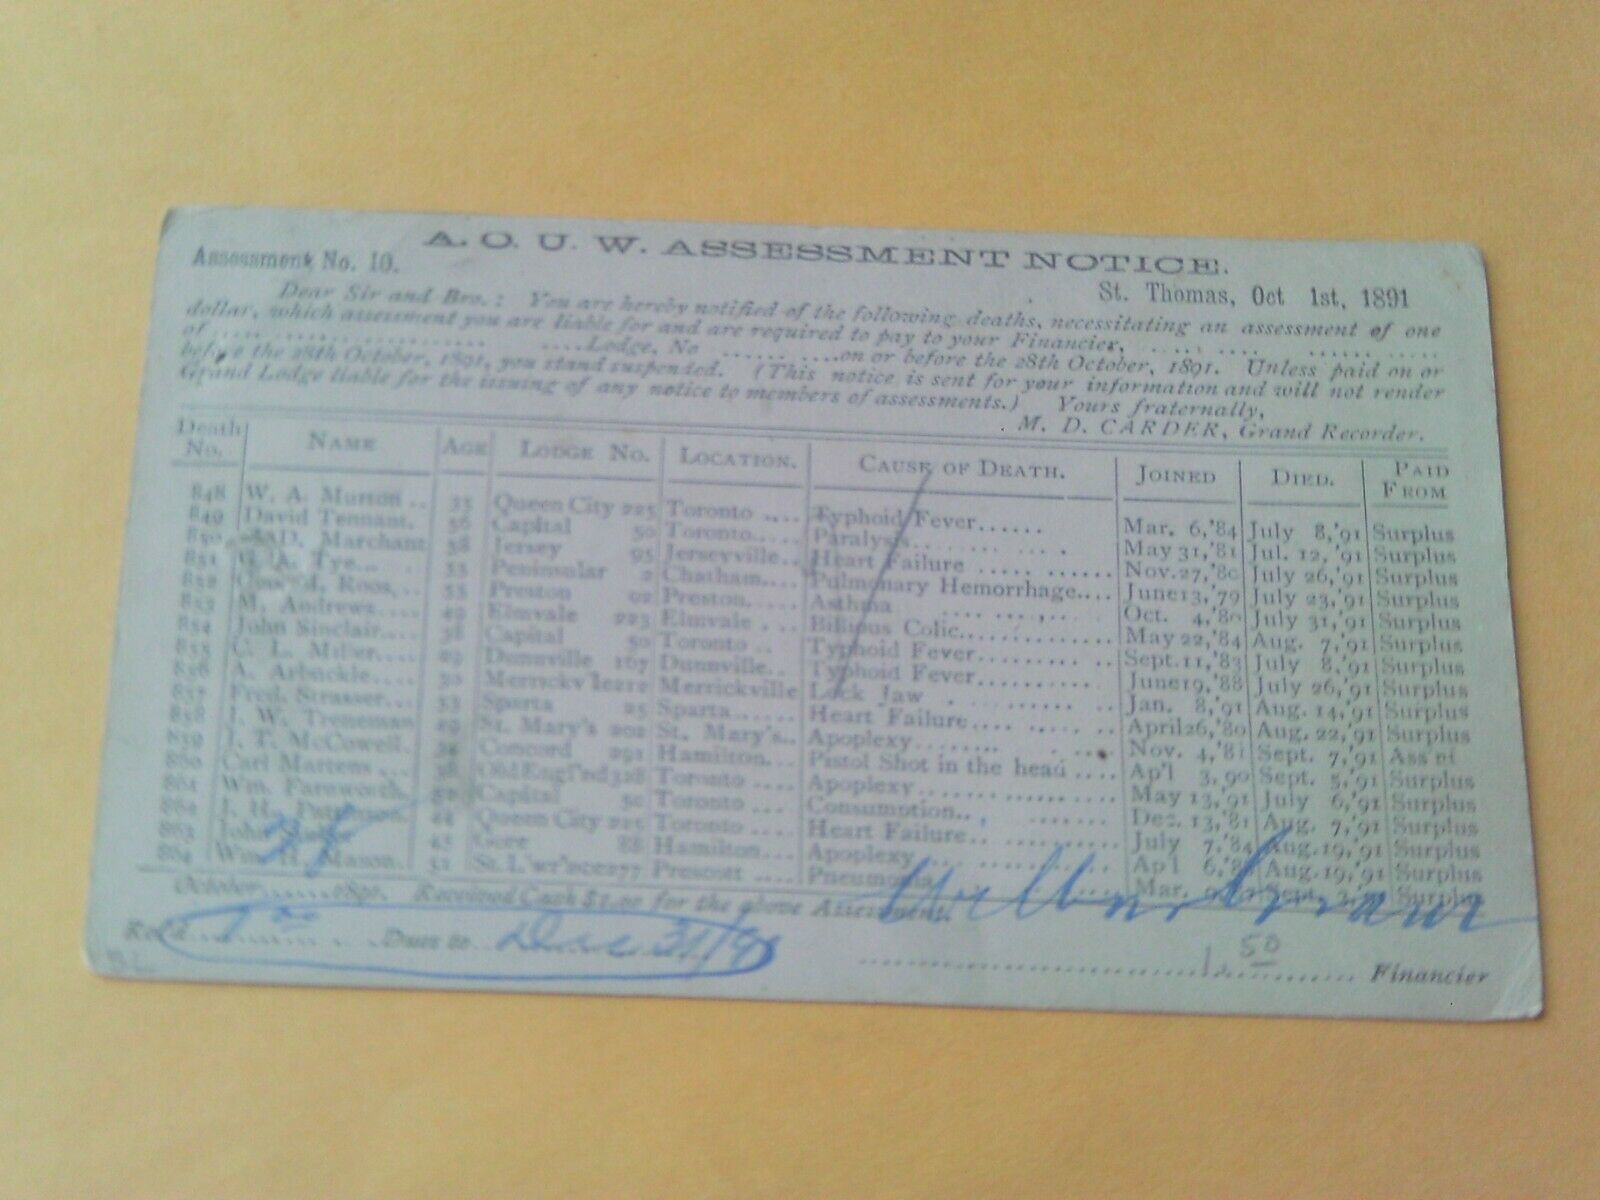 A. O. U. W. ASSESSMENT NOTICE.
Assessment No. 10.
St. Thomas, Oct 1st, 1891
Dear Sir and Bro.: You are hereby notified of the following deaths, necessitating an assessment of one
dollar, which assessment you are liable for and are required to pay to your Financier, ..... .... ...... .....
of ..... ............... ....Lodge, No ...... ......on or before the 28th October, 1891. Unless paid on or
before the 28th October, 1891, you stand suspended. (This notice is sent for your information and will not render
Grand Lodge liable for the issuing of any notice to members of assessments.) Yours fraternally,
M. D. CARDER, Grand Recorder.
Death No. NAME AGE LODGE NO. LOCATION. CAUSE OF DEATH. JOINED DIED. PAID FROM
848 W. A. Murton .. 33 Queen City 225 Toronto .... Typhoid Fever...... Mar. 6,'84 July 8,'91 Surplus
849 David Tennant. 56 Capital 50 Toronto..... Paralysis May 31,'81 Jul. 12,'91 Surplus
850 D. Marchant 58 Jersey 95 Jerseyville.. Heart Failure Nov. 27,'80 July 26,'91 Surplus
851 A. Tye... 55 Peninsular 2 Chatham.... Pulmonary Hemorrhage.... June 13,'79 July 23,'91 Surplus
852 Roos... 55 Preston 92 Preston..... Asthma Oct. 4,'80 July 31,'91 Surplus
853 M. Andrews.... 49 Elmvale 223 Elmvale ... Billious Colic May 22,'84 Aug. 7,'91 Surplus
854 John Sinclair.... 38 Capital 50 Toronto .. Typhoid Fever Sept. 11,'83 July 8,'91 Surplus
855 C. L. Miller.... 29 Dunnville 167 Dunnville.. Typhoid Fever June 19,'88 July 26,'91 Surplus
856 A. Arbuckle.... 30 Merrickv'le 212 Merrickville Lock Jaw Jan. 8,'91 Aug. 14,'91 Surplus
857 Fred. Strasser... 53 Sparta 25 Sparta...... Heart Failure April 26,'80 Aug. 22,'91 Surplus
858 J. W. Treneman 49 St. Mary's 202 St. Mary's.. Apoplexy Nov. 4,'81 Sept. 7,'91 Ass'nt
859 J. T. McCowell. Concord 291 Hamilton.... Pistol Shot in the head .... Ap'l 3, 90 Sept. 5,'91 Surplus
860 Carl Martens ... 38 Old Engl'nd 328 Toronto .... Apoplexy May 13,'91 July 6,'91 Surplus
861 Wm. Farnworth. Capital 50 Toronto ... Consumption.. Dec. 13,'81 Aug. 7,'91 Surplus
862 J. H. 44 Queen City 225 Toronto .... Heart Failure July 7,'84 Aug. 19,'91 Surplus
863 John 45 Gore 88 Hamilton... Apoplexy Ap'l 6, Aug. 19,'91 Surplus
864 Wm. H. Mason. 51 St. L'wr'nce 277 Prescott .... Pneumonia Mar. Sept. Surplus
October ...... 1891. Received Cash $1.00 for the above Assessment.
Rec'd ......... Dues to Dec 31/91
1.50
Financier